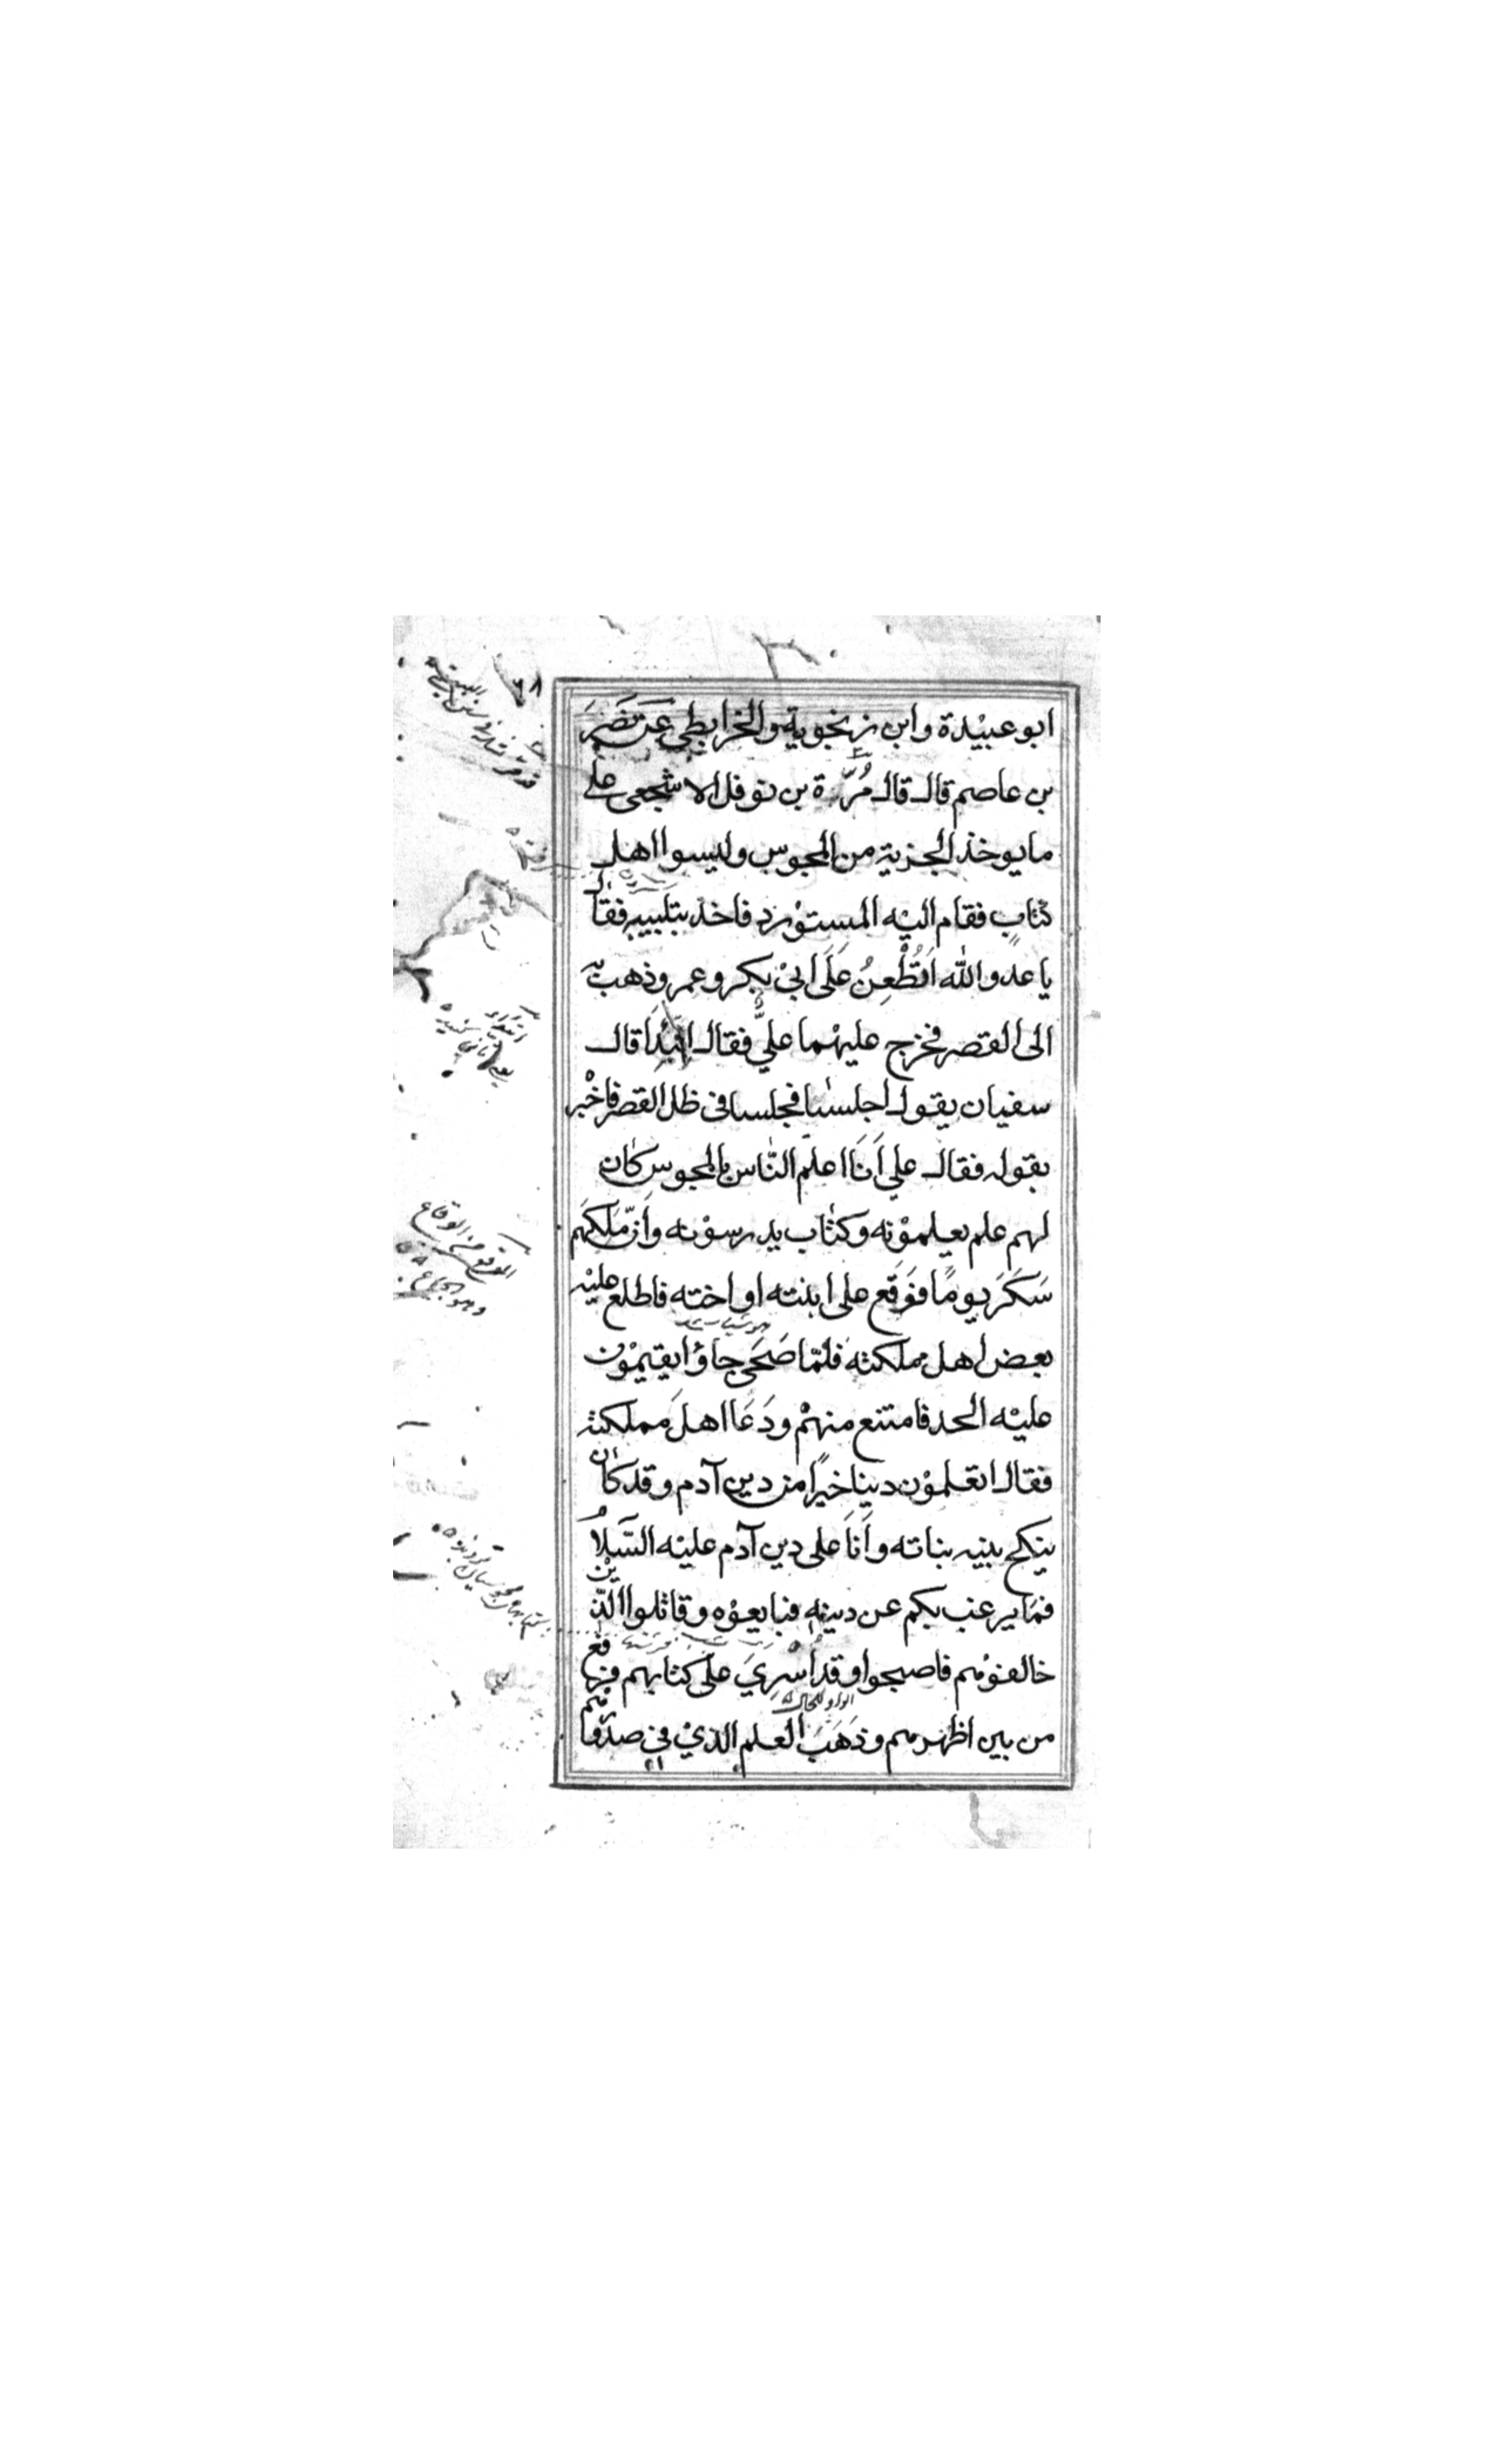 ٦٨
ابو عبيْدة وابن زنجوية والخرابطي عَن نَصْرَ
بن عاصم قال قال مُرَّة بن نوفل الاشجعي على
ما يوخذ الجزية من المجوس وليسوا اهل
كتابٍ فقام اليْه المستوْرد فاخذ بتلبيبه فقال
يا عدو الله اَتُطْعِنُ عَلَى ابيْ بكر وعمر وذهب به
الى القصر فخرج عليهْما عليٌّ فقال اتئِدَا قال
سفيان يقول اجلسا فجلسا في ظل القصر فاخْبر
بقوله فقال علي اَنَا اعلم النّاس بالمجوس كان
لهم علم يعلموْنه وكتاب يدرسوْنه واَنّ مَلَكَهم
سَكَرَ يومًا فوَقَع على ابنته او اخته فاطلع عليْه
بعض اهل مملكته فلمّا صَحَى جاؤا يقيموْن
عليْه الحد فامتنع منهمْ ودَعَا اهلَ مملكته
فقال اتعلموْن دينا خيرًا من دين آدم وقد كان
ينكح بنيه بناته واَنَا على دين آدم عليْه السّلامُ
فمَا يرغب بكم عن دينه فبايعوْه وقاتلوا الذيْن
خالفوْهم فاصبحوا وقد اُسْرِيَ على كتابهم فرفع
من بين اظهرهم وذَهَبَ العلم الذيْ في صدورهم
الواو للحال
الوقع من الوقاع
وهو الجماع